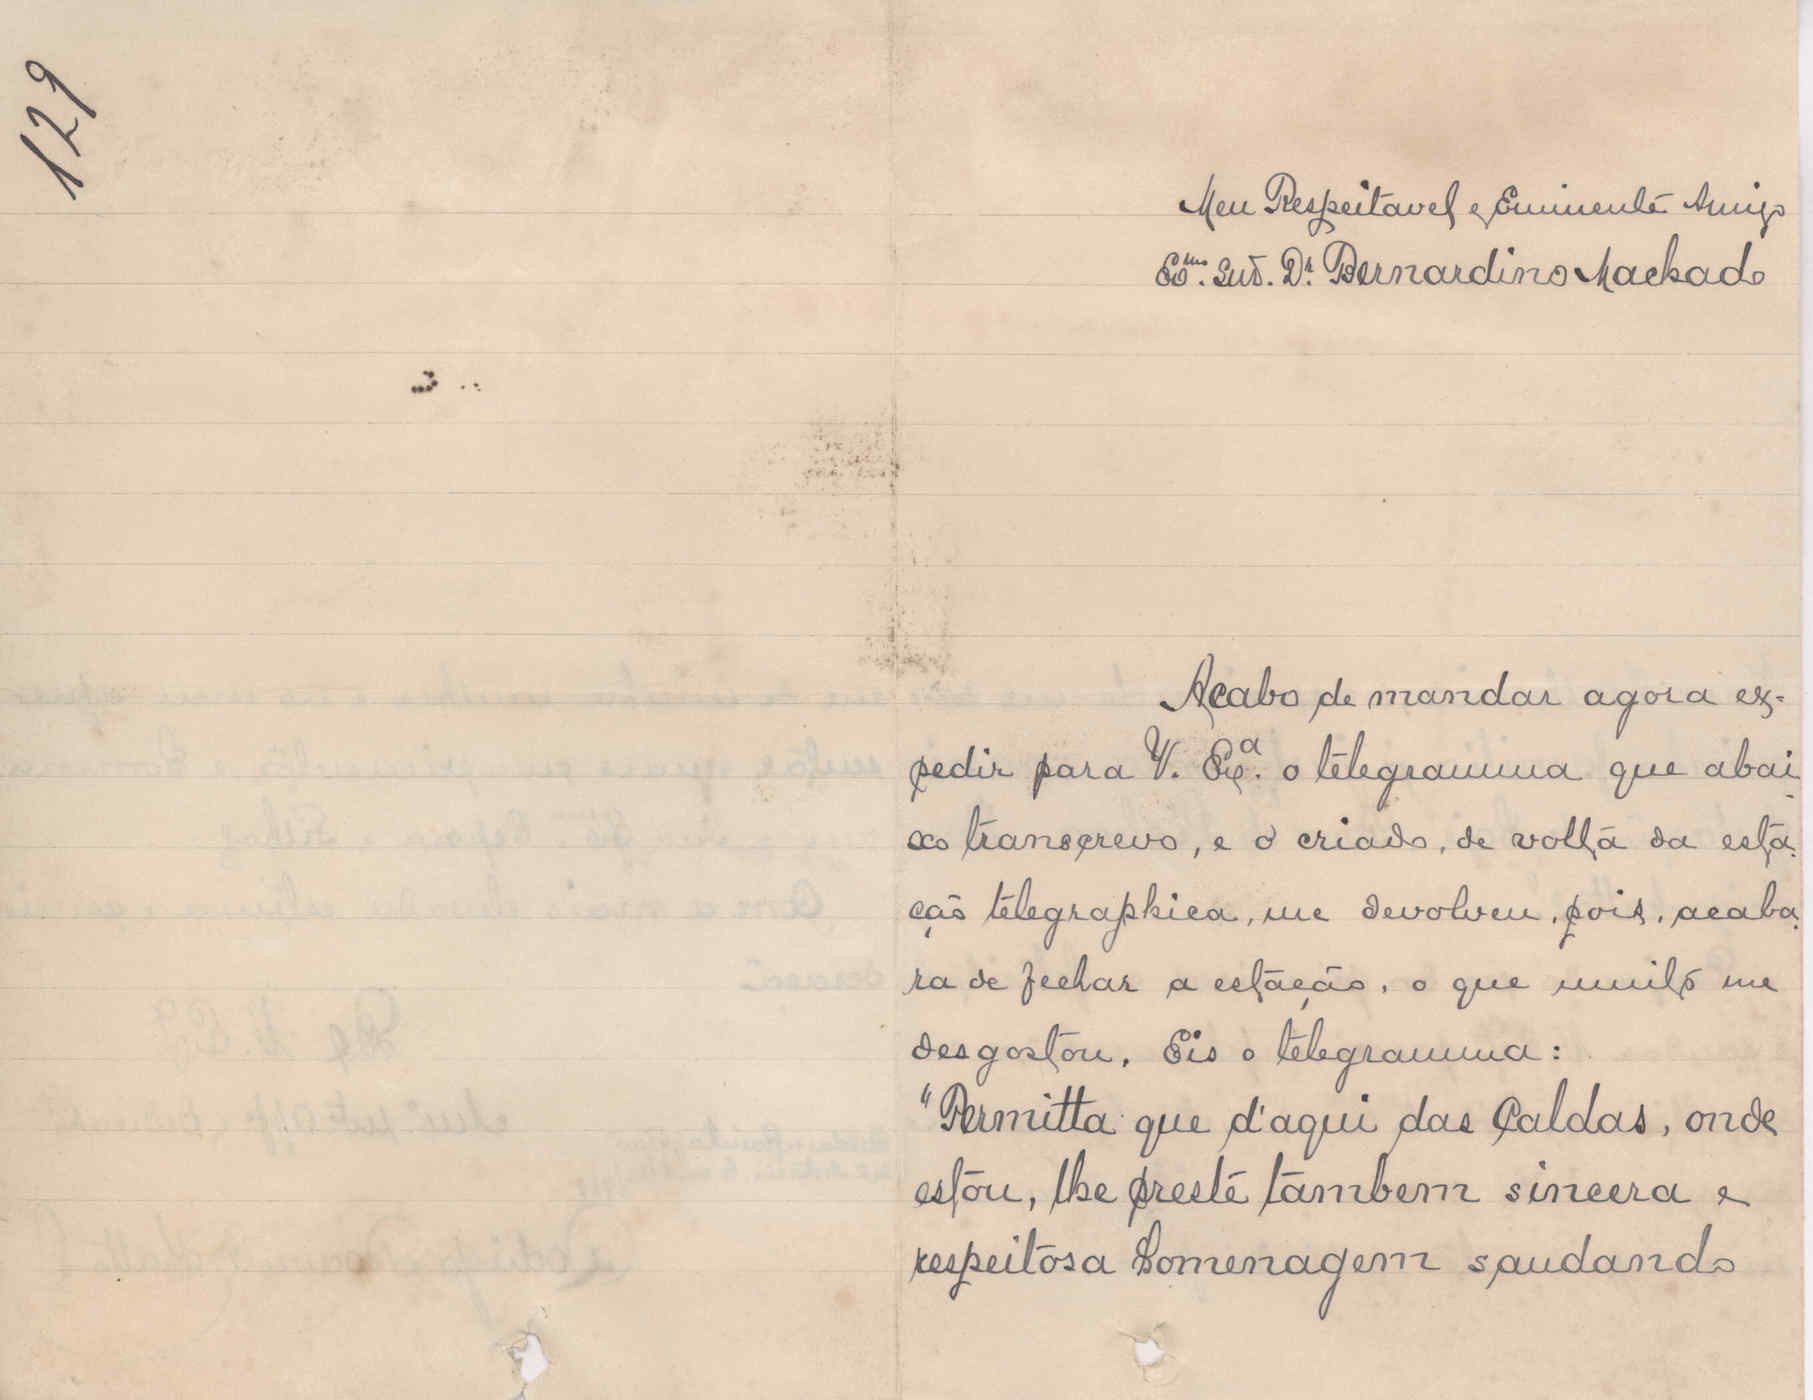 129
Meu Respeitavel e Eminente Amigo
Exmo. Snr. Dr. Bernardino Machado
Acabo de mandar agora ex-
pedir para V. Exa. o telegramma que abai-
xo transcrevo, e o criado, de volta da esta-
ção telegraphica, me devolveu, pois, acaba-
ra de fechar a estação, o que muito me
desgostou. Eis o telegramma:
"Permitta que d'aqui das Caldas, onde
estou, lhe preste tambem sincera e
respeitosa homenagem saudando